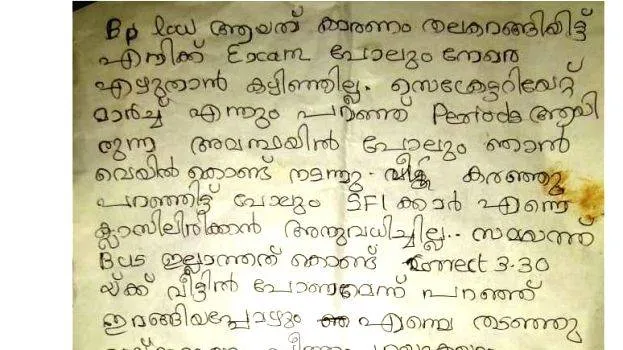 Bp low ആയത് കാരണം തലകറങ്ങിയിട്ട്
എനിക്ക് Exam പോലും നേരെ
എഴുതാൻ കഴിഞ്ഞില്ല. സെക്രട്ടറിയേറ്റ്
മാർച്ച് എന്നും പറഞ്ഞ് Periods ആയി
രുന്ന അവസ്ഥയിൽ പോലും ഞാൻ
വെയിൽ കൊണ്ട് നടന്നു. കരഞ്ഞു
പറഞ്ഞിട്ട് പോലും SFI ക്കാർ എന്നെ
ക്ലാസിലിരിക്കാൻ അനുവദിച്ചില്ല.. സമയത്ത്
Bus ഇല്ലാത്തത് കൊണ്ട് correct 3.30
യ്ക്ക് വീട്ടിൽ പോണമെന്ന് പറഞ്ഞ്
ഇറങ്ങിയപ്പോഴും എന്നെ തടഞ്ഞു